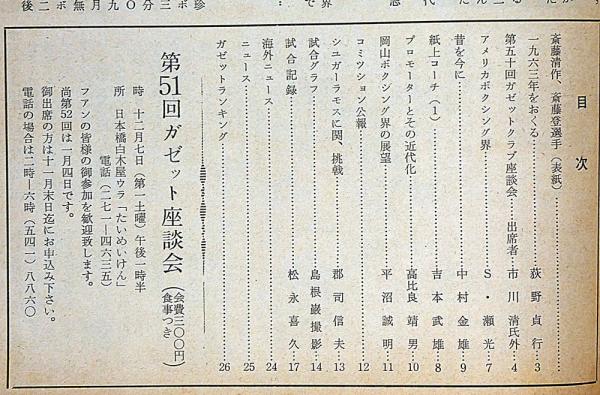 目次
斎藤清作、斎藤登選手(表紙)
一九六三年をおくる……荻野貞行…3
第五十回ガゼットクラブ座談会……出席者…市川清氏外…4
アメリカボクシング界……S・瀬光…7
昔を今に……中村金雄…9
紙上コーチ(1)……吉本武雄…8
プロモーターとその近代化……高比良靖男…10
岡山ボクシング界の展望……平沼誠明…11
コミツション公報……12
シユガーラモスに関、挑戦……郡司信夫…13
試合グラフ……島根巌撮影…14
試合記録……松永喜久…17
海外ニュース……24
ニュース……25
ガゼットランキング……26
第51回ガゼット座談会(会費三〇〇円 食事つき)
時 十二月七日(第一土曜)午後一時半
所 日本橋白木屋ウラ「たいめいけん」
電話(二七一―四六三五)
フアンの皆様の御参加を歓迎致します。
尚第52回は一月四日です。
御出席の方は十一月末日迄にお申込み下さい。
電話の場合は二時―六時(五四一)八八六〇